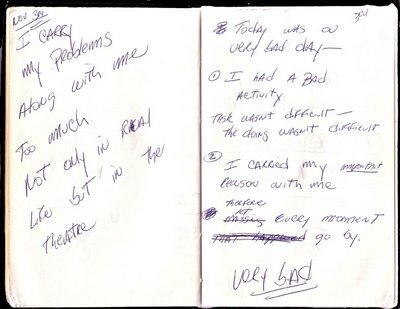 NOV 3rd
I CARRY
my Problems
Along with me
Too much.
Not only in REAL
Life but in the
theatre
3rd
Today was a
very bad day—
① I had a bad
activity.
Task wasn't difficult —
the doing wasn't difficult
② I carried my important
reason with me
therefore
let
missing every moment
that happened go by.
very bad